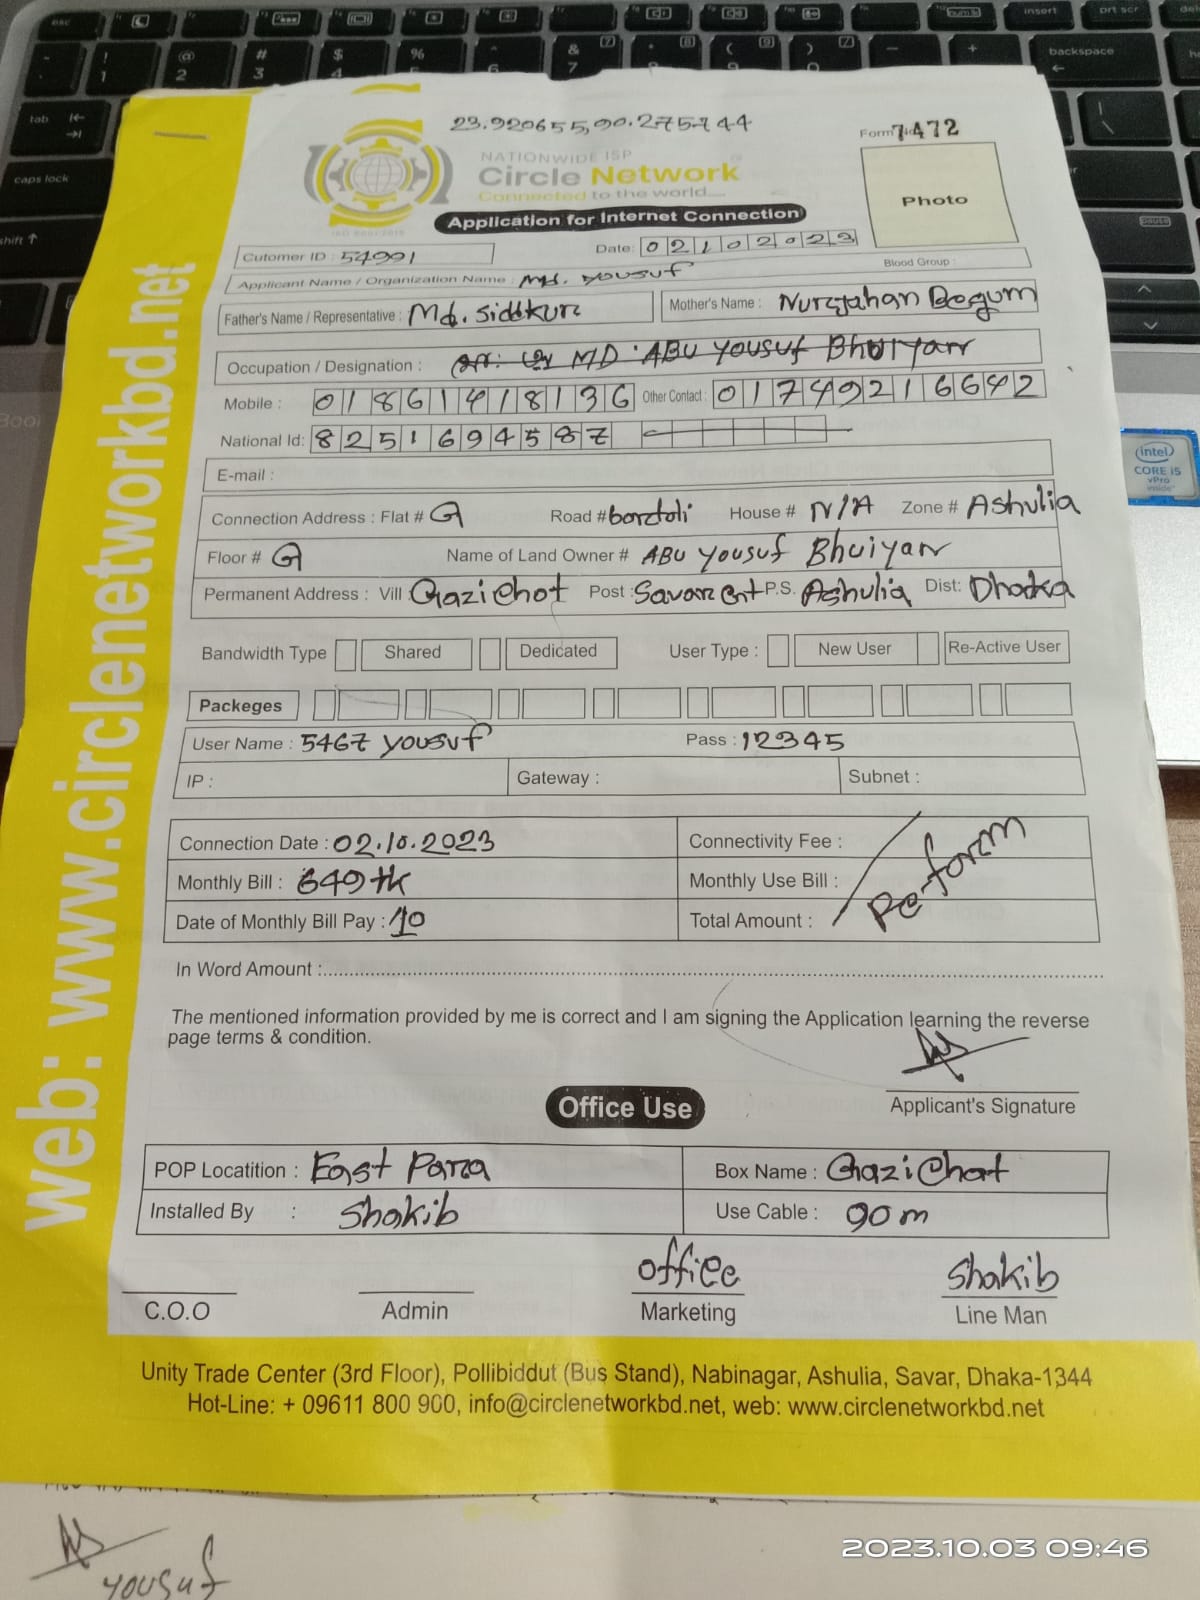 23.920655,90.275744
Form No 7472
NATIONWIDE ISP
Circle Network
Connected to the world....
Photo
Application for Internet Connection
Cutomer ID : 54991 Date: 02102023
Applicant Name / Organization Name : Md. yousuf Blood Group :
Father's Name / Representative : Md. Siddkur Mother's Name : Nurjahan Begum
Occupation / Designation : MD. ABU YOUSUF Bhuiyan
Mobile : 01861418136 Other Contact : 01749216642
National Id: 8251694587
E-mail :
Connection Address : Flat # G Road # bordoli House # N/A Zone # Ashulia
Floor # G Name of Land Owner # ABU YOUSUF Bhuiyan
Permanent Address : Vill Gazi Chot Post : Savar Cnt P.S. Ashulia Dist: Dhaka
Bandwidth Type Shared Dedicated User Type : New User Re-Active User
Packeges
User Name : 5467 yousuf Pass : 12345
IP : Gateway : Subnet :
Connection Date : 02.10.2023 Connectivity Fee :
Monthly Bill : 649 tk Monthly Use Bill : Re-form
Date of Monthly Bill Pay : 10 Total Amount :
In Word Amount :
The mentioned information provided by me is correct and I am signing the Application learning the reverse
page terms & condition.
Applicant's Signature
Office Use
POP Locatition : East Para Box Name : Gazi Chat
Installed By : Shakib Use Cable : 90 m
office Shakib
C.O.O Admin Marketing Line Man
Unity Trade Center (3rd Floor), Pollibiddut (Bus Stand), Nabinagar, Ashulia, Savar, Dhaka-1344
Hot-Line: + 09611 800 900, info@circlenetworkbd.net, web: www.circlenetworkbd.net
web: www.circlenetworkbd.net
yousuf
2023.10.03 09:46
intel
CORE i5
vPro
inside
esc
insert
prt scr
backspace
tab
caps lock
shift
pause